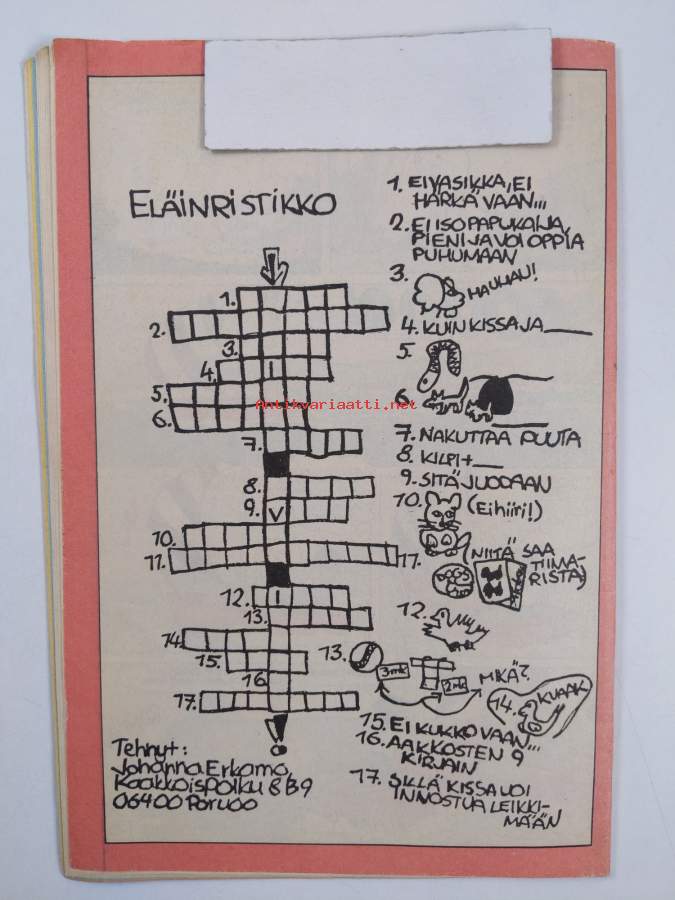 ELÄINRISTIKKO
1. EI VASIKKA, EI
HÄRKÄ VAAN...
2. EI ISO PAPUKAIJA,
PIENI JA VOI OPPIA
PUHUMAAN
3. HAUHAU!
4. KUIN KISSA JA
5.
6.
7. NAKUTTAA PUUTA
8. KILPI+
9. SITÄ JUODAAN
10. (Ei hiiri!)
11. (NIITÄ SAA
TIIMA-
RISTA)
12.
13. 3mk 2mk MIKÄ?
14. KVAAK
15. EI KUKKO VAAN...
16. AAKKOSTEN 9
KIRJAIN
17. SILLÄ KISSA VOI
INNOSTUA LEIKKI-
MÄÄN
1.
2.
3.
4. I
5.
6.
7.
8.
9. V
10.
11.
12. I
13.
14.
15.
16.
17.
Tehnyt:
Johanna Erkamo,
Kaakkoispolku 8 B 9
06400 Porvoo
Antikvariaatti.net